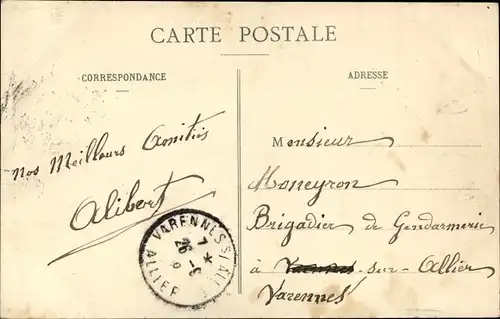 CARTE POSTALE
CORRESPONDANCE
ADRESSE
Nos Meilleurs Amitiés
Alibert
Monsieur
Moneyron
Brigadier de Gendarmerie
à Varennes -sur- Allier
Varennes
VARENNES S/ ALLIER
ALLIER